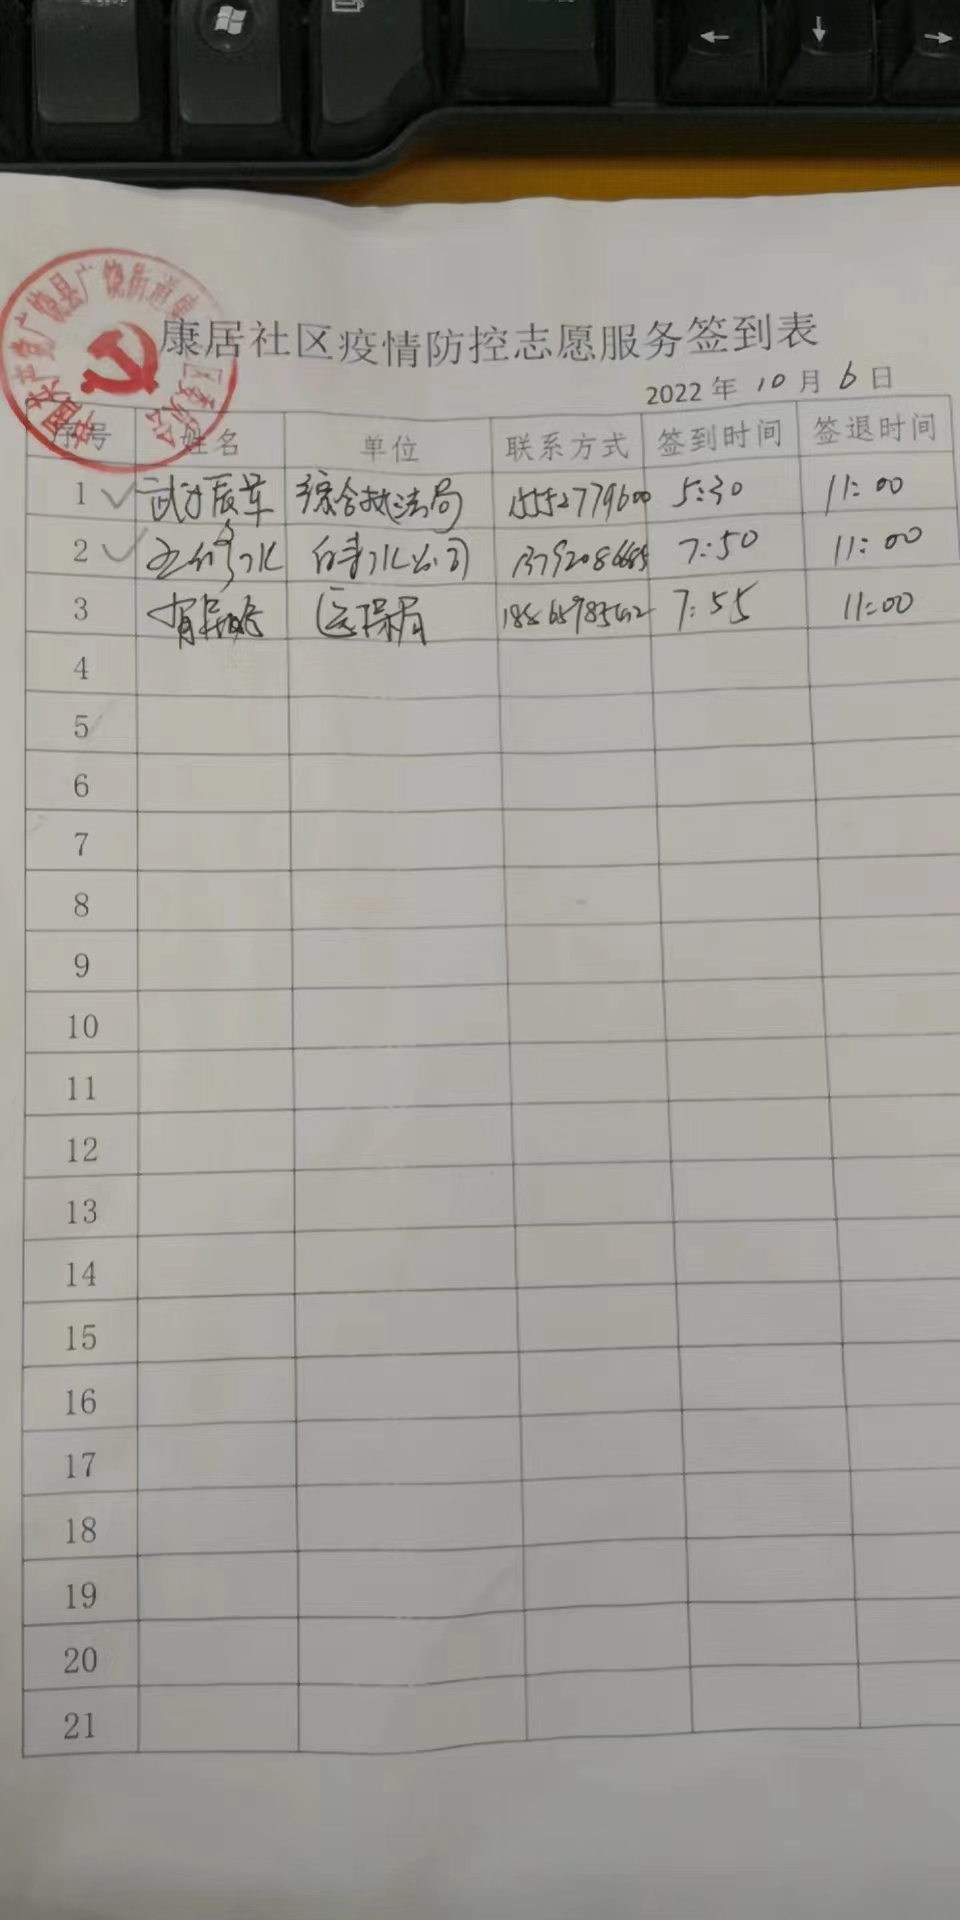 康居社区疫情防控志愿服务签到表
2022年 10 月 6 日
序号 姓名 单位 联系方式 签到时间 签退时间
1 综合执法局 15552779600 5:30 11:00
2 自来水公司 7:50 11:00
3 医保局 7:55 11:00
4
5
6
7
8
9
10
11
12
13
14
15
16
17
18
19
20
21